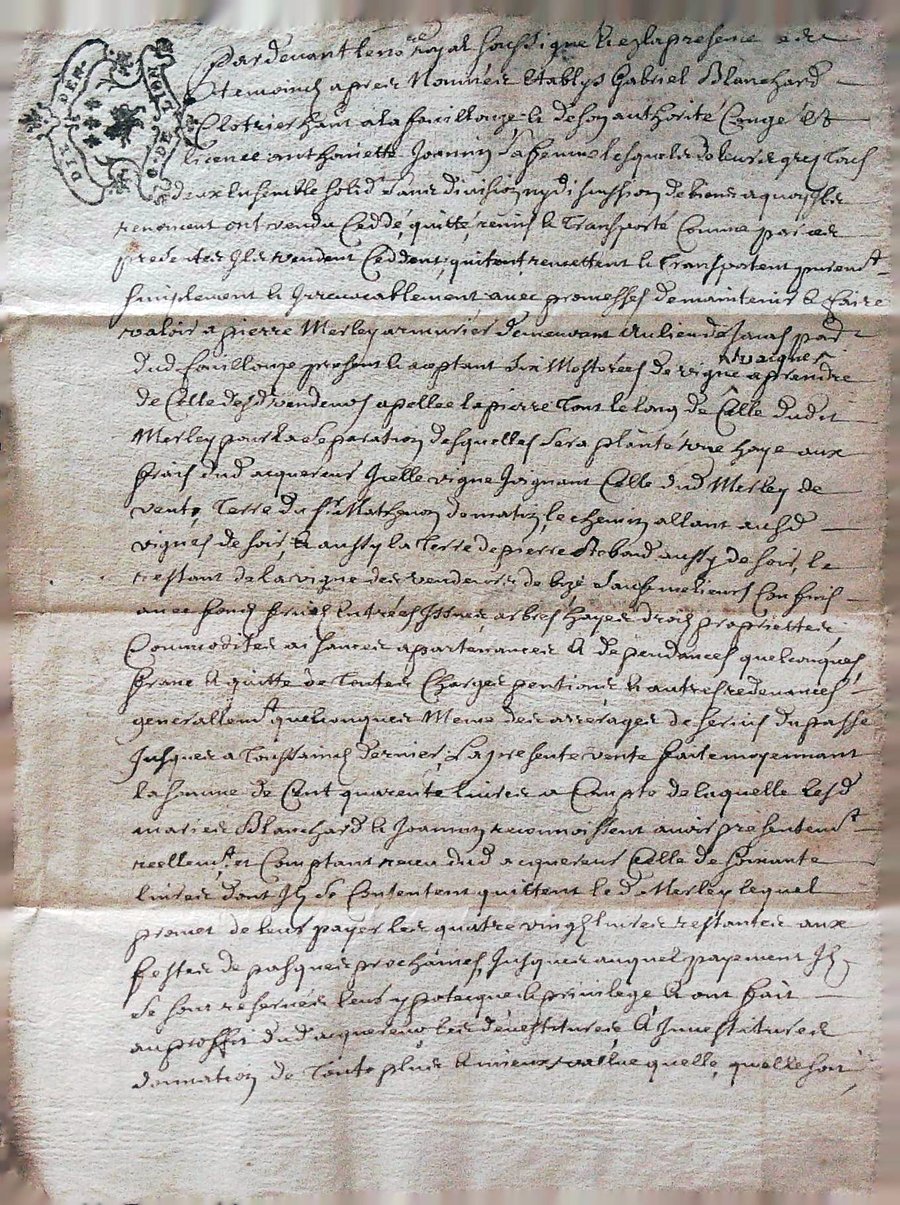 Pardevant le no.re royal soussigné & en la presence des
temoins apres nommés etablys Gabriel Blanchard
Clotrier hant a la fouillouze & de son authorité Congé &
licence anthoinette Joannin sa femme lesquels de leurs grez tous
deux ensemble solid.t sans division ny discussion de biens a quoy ils
renoncent ont vendu Ceddé, quitté, remis & Transporté Comme par ces
presentes Ils vendent Ceddent, quitent, remettent & Transportent purem.t
simplement & Irrevocablement avec promesses de maintenir & faire
valoir a pierre Merley armurier demeurant au lieu de
dud fouillouze present & aceptant six Mestérées de vigne a prendre
de Celle desd vendeurs apellee la pierre Tout le long de Celle dudit
Merley pour la separation desquelles sera planté une haye aux
frais dud acquereur Icelle vigne Joignant Celle dud Merley de
vent, Terre du s.r Mathevon de matin, le chemin allant ausd
vignes de soir, & aussy la Terre de pierre aussy de soir, le
restant de la vigne des vendeurs de bize sauf meilleurs Confins
avec fonds fruits Entrées Issues arbres hayes droits proprietés,
Commodites aisances apartenances & dependances quelconques,
franc & quitte de Toutes Charges pentions & autres redevances
generallem.t quelconques Meme des arrerages de servis du passé
Jusques a Toussaincts dernier, La presente vente faite moyennant
la somme de Cent quarente livres a Compte de laquelle lesd
maries Blanchard & Joannon reconnoissent avoir presentem.t
reellem.t et Comptant receu dud acquereur Celle de soixante
livres dont Ils se Contentent quittent led Merley lequel
promet de leur payer les quatre vingt livres restantes aux
festes de pasques prochaines, Jusques auquel payement Ils
se sont reservées leur ypotecque & privilege & ont fait
au proffit dud acquereur les devestitures & Investitures
donnation de Toute plus & mieux vallue quelle, quelle soit,